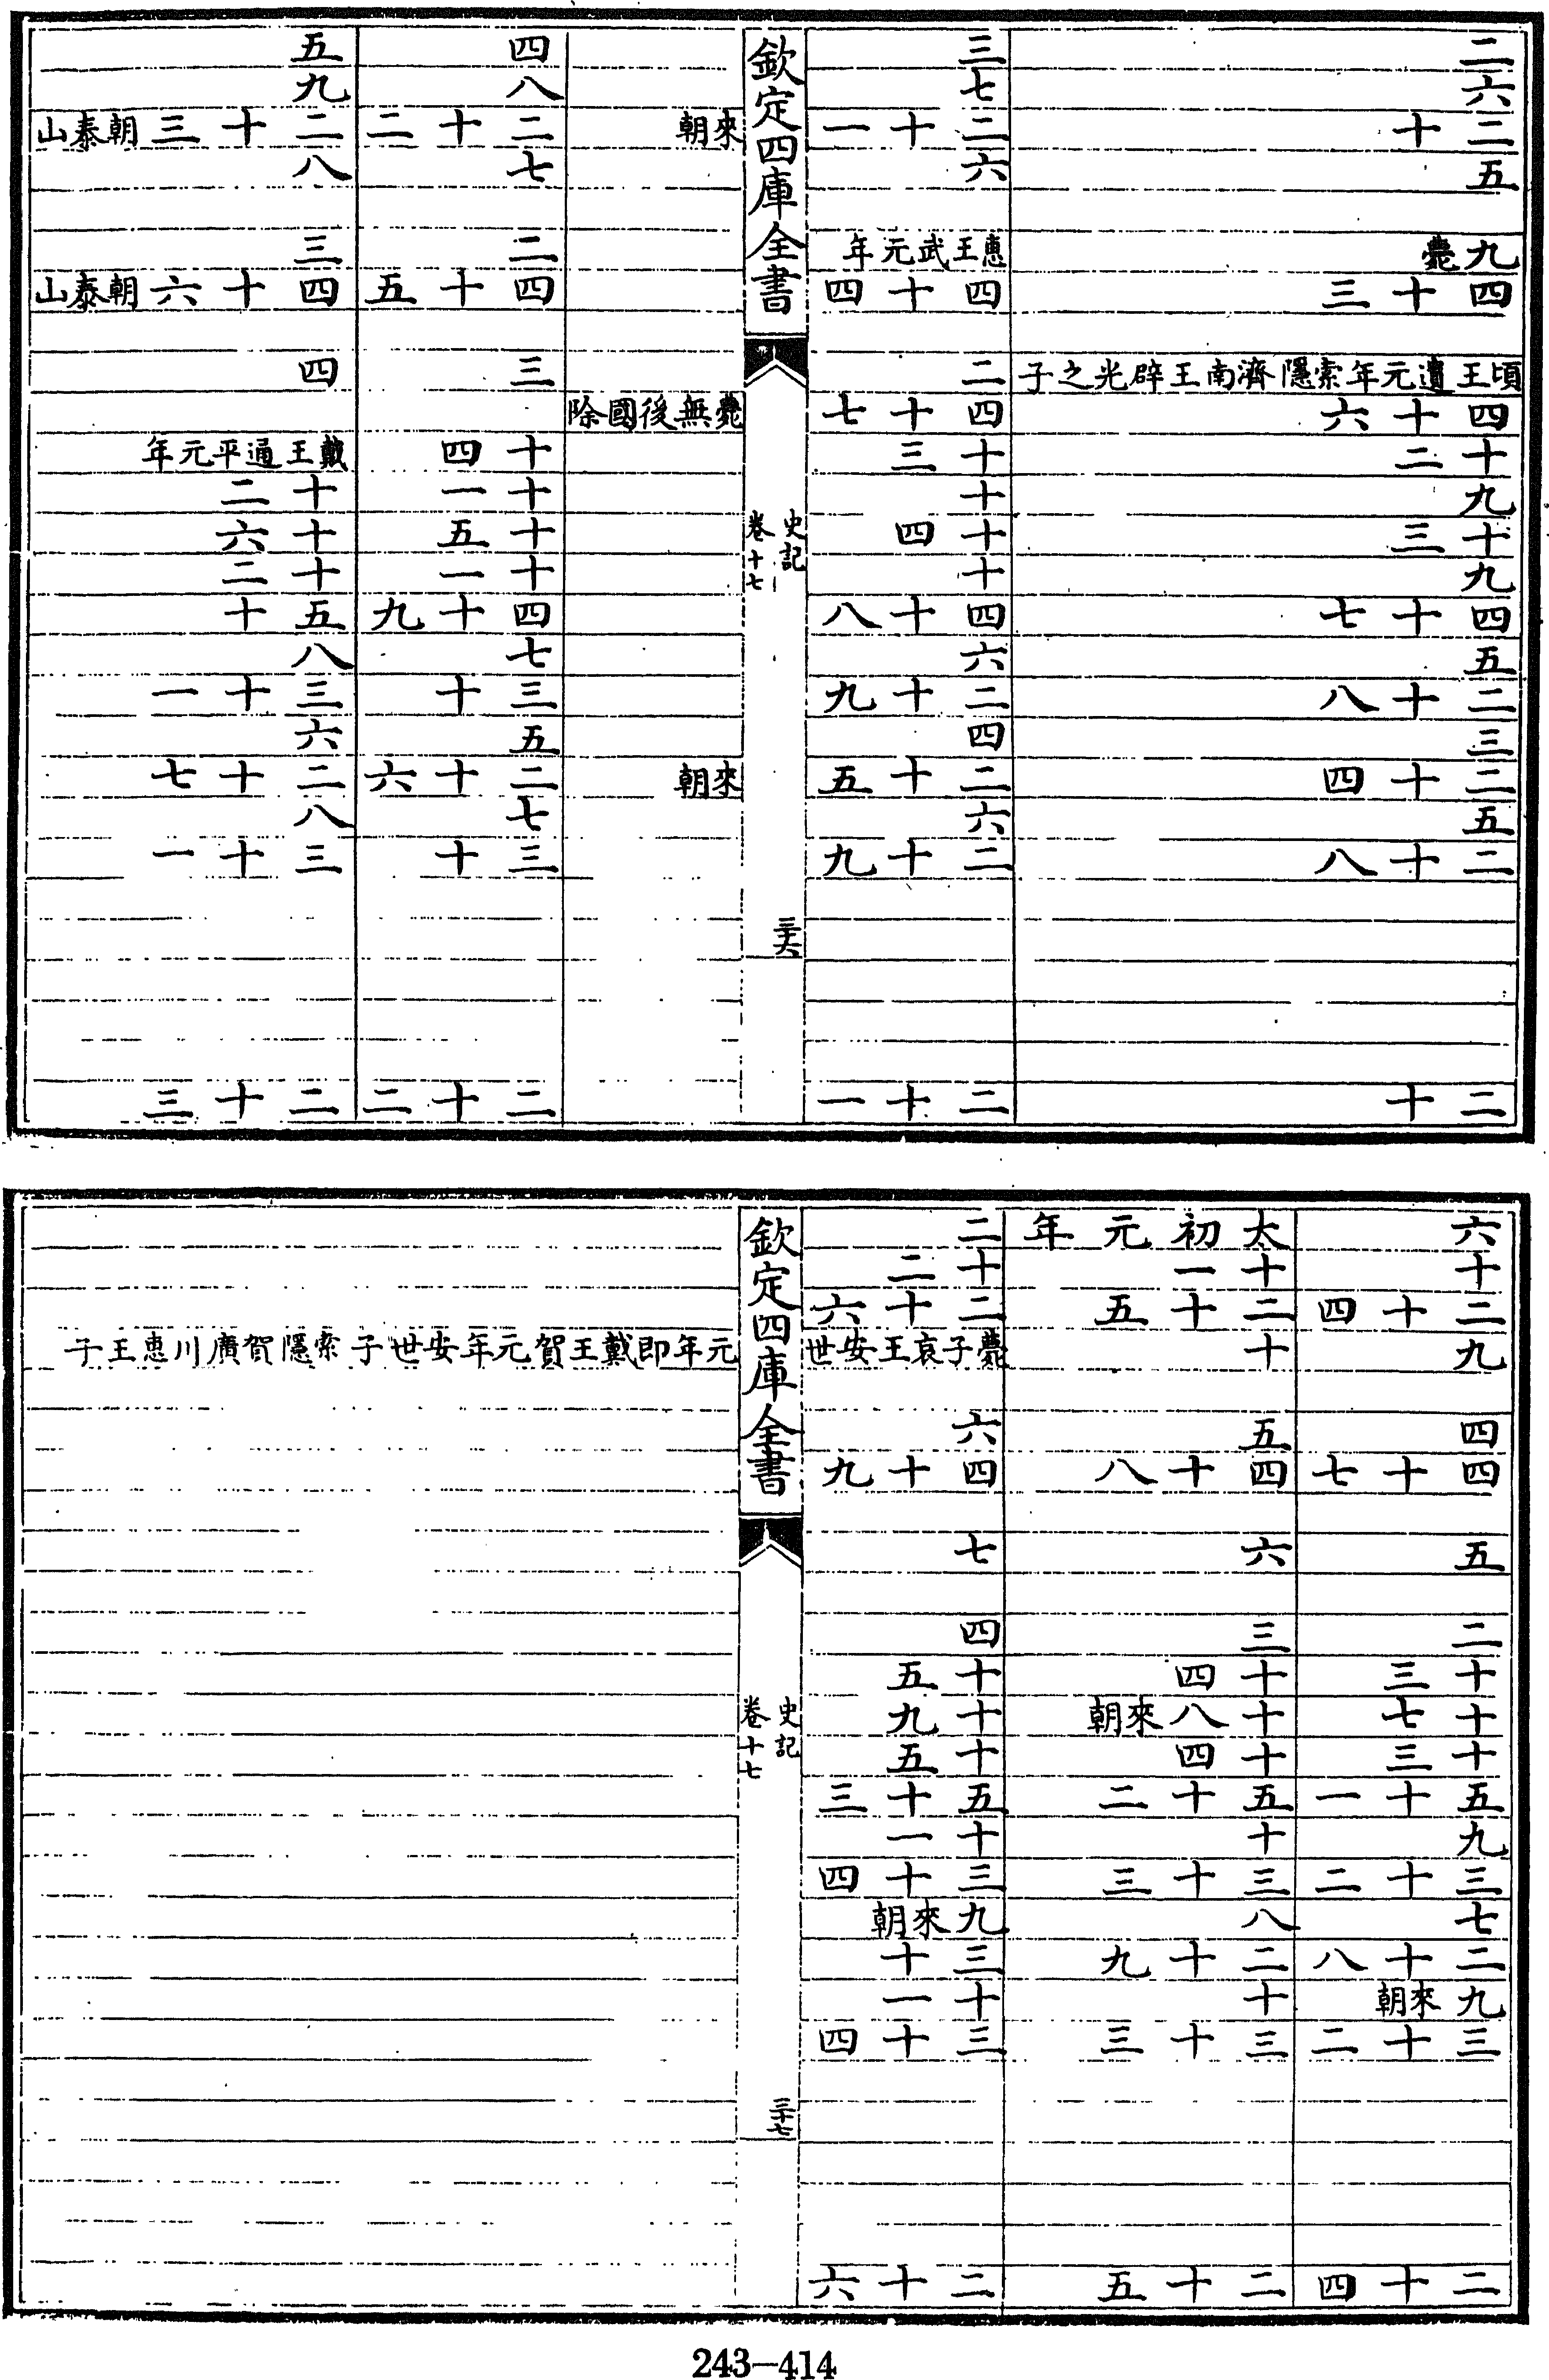 二
六
二十
五
九薨
四十三
頃王遺元年索隱濟南王辟光之子
四十六
十二
九
十三
九
四十七
五
二十八
三
二十四
五
二十八
二十
三
七
二十一
六
惠王武元年
四十四
二
四十七
十三
十
十四
十
四十八
六
二十九
四
二十五
六
二十九
二十一
欽定四庫全書
史記
卷十七
三十六
來朝
薨無後國除
來朝
四
八
二十二
七
二
四十五
三
十四
十一
十五
十一
四十九
七
三十
五
二十六
七
三十
二十二
五
九
二十三朝泰山
八
三
四十六朝泰山
四
戴王通平元年
十二
十六
十二
五十
八
三十一
六
二十七
八
三十一
二十三
六
十
二十四
九
四
四十七
五
二
十三
十七
十三
五十一
九
三十二
七
二十八
九來朝
三十二
二十四
太初元年
十一
二十五
十
五
四十八
六
三
十四
十八來朝
十四
五十二
十
三十三
八
二十九
十
三十三
二十五
二
十二
二十六
薨子哀王安世
六
四十九
七
四
十五
十九
十五
五十三
十一
三十四
九來朝
三十
十一
三十四
二十六
欽定四庫全書
史記
卷十七
三十七
元年即戴王賀元年安世子索隱賀廣川惠王子
243-414